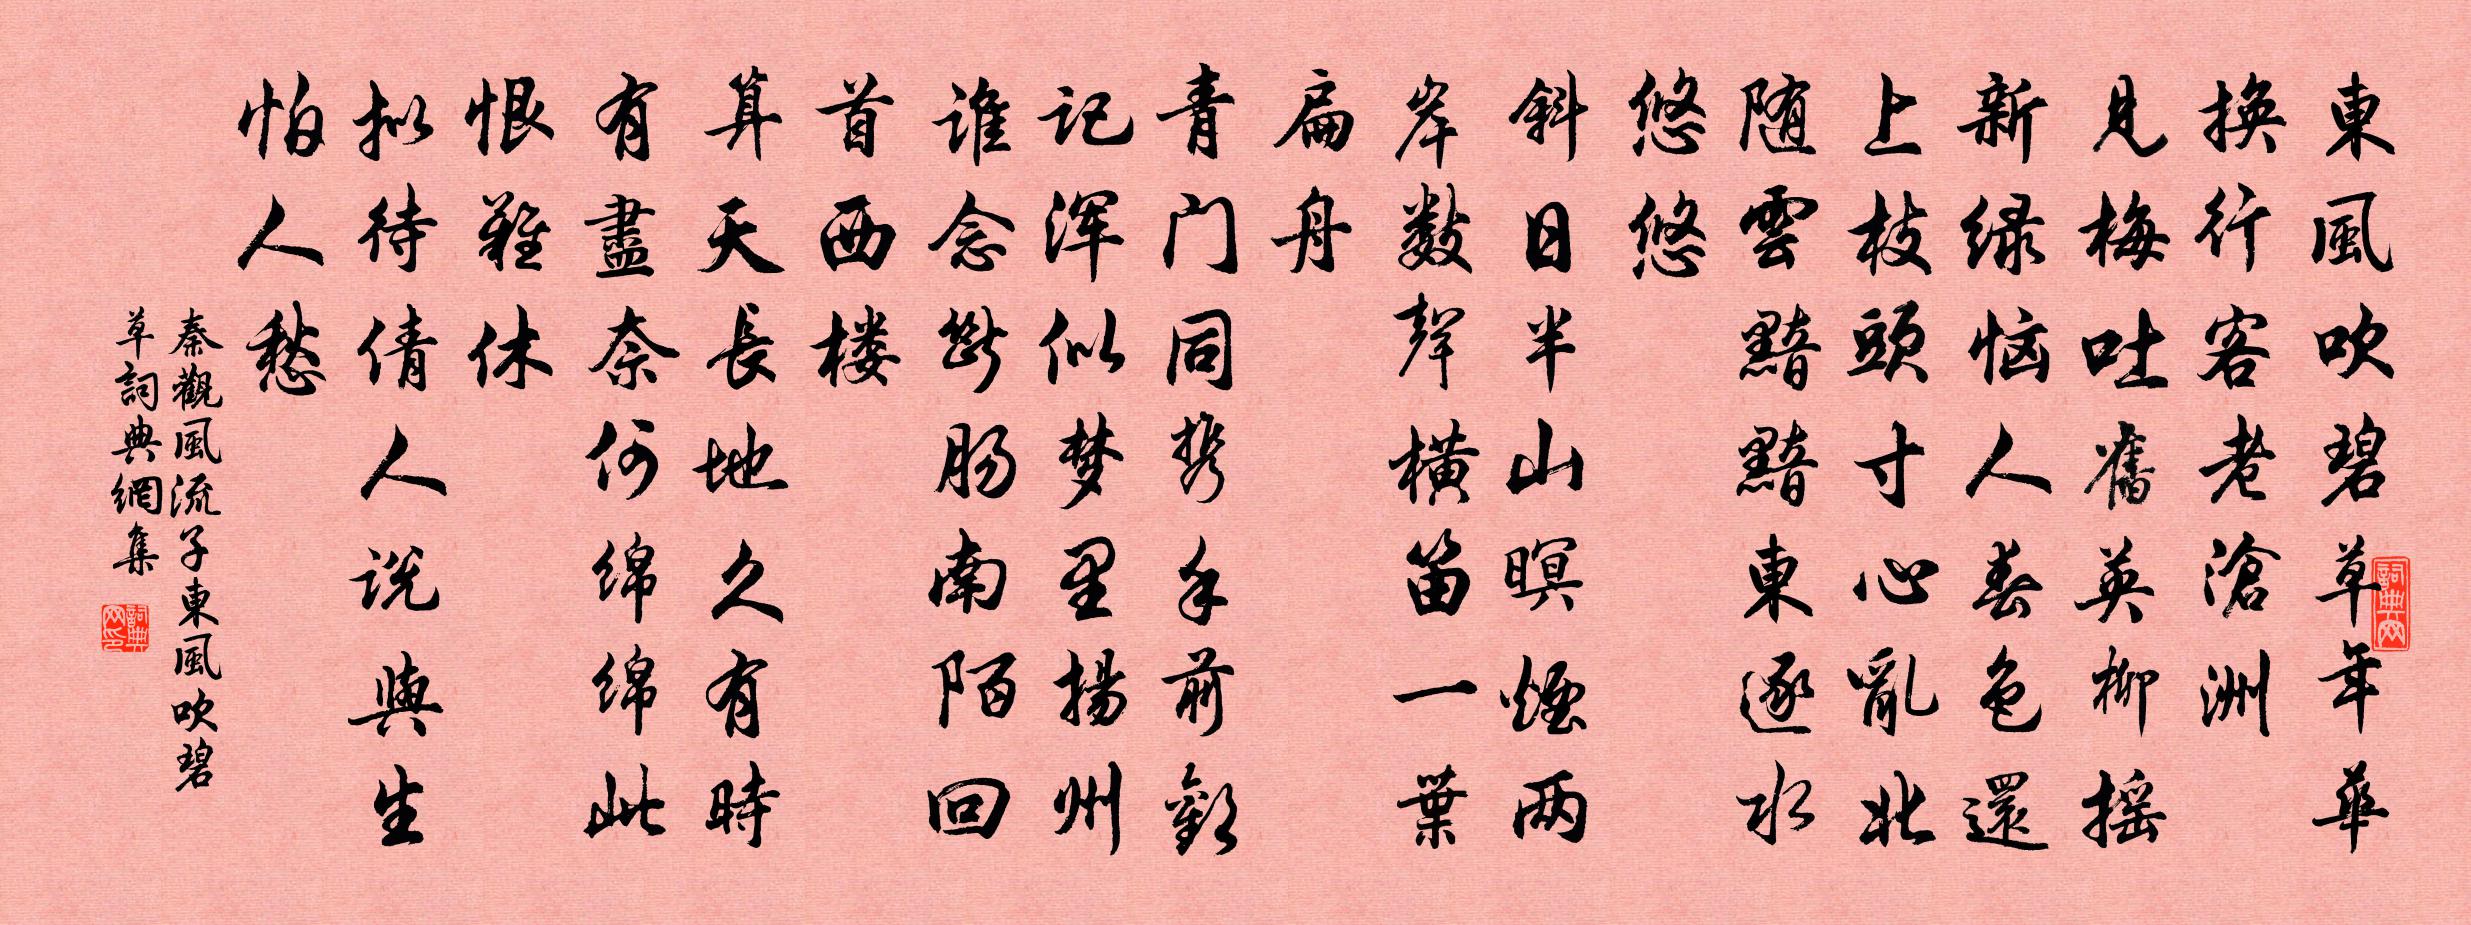 東風吹碧草年華
換行客老滄洲
見梅吐舊英柳摇
新緑恼人春色還
上枝頭寸心亂北
随雲黯黯東逐水
悠悠
斜日半山暝煙两
岸數聲横笛一葉
扁舟
青门同携手前歡
记浑似梦里揚州
谁念斷肠南陌回
首西楼
算天長地久有時
有盡奈何绵绵此
恨難休
拟待倩人说與生
怕人愁
秦觀風流子東風吹碧
草詞典網集
詞典网
詞典网印